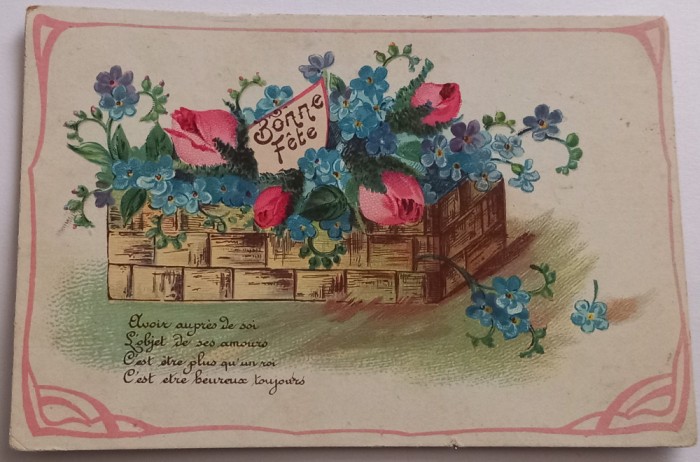 Bonne
Fête
Avoir auprès de soi
L'objet de ses amours
C'est être plus qu'un roi
C'est etre heureux toujours